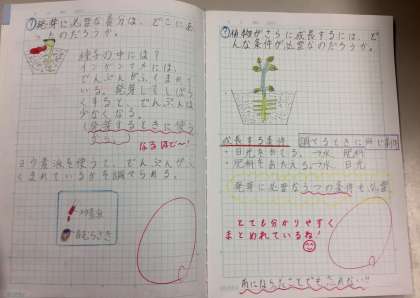 発芽に必要な養分は、どこにあ
るのだろうか。
種子の中には？
インゲンマメには、
でんぷんがふくまれて
いる。発芽してしばら
くすると、でんぷんは
少なくなる。
（発芽するときに使う
から）
なるほど〜!
ヨウ素液を使うと、でんぷんがふ
くまれているかを調べられる。
ヨウ素液
青むらさき
植物がさらに成長するには、ど
んな条件が必要なのだろうか。
成長する条件
調べるときに同じ条件
・日光をあてる。→水 肥料
・肥料をあたえる。→水 日光
発芽に必要な3つの条件も必要
とても分かりやすく
まとめれているね!